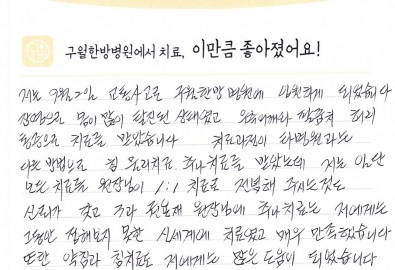 구월한방병원에서 치료, 이만큼 좋아졌어요!
저는 9월 2일 교통사고로 구월한방병원에 입원하게 되었습니다
전체적으로 몸이 많이 상태였고 오른어깨와 팔꿈치 허리
통증으로 치료를 받았습니다 치료과정이 타병원과는
다른 방법으로 침, 물리치료, 추나치료를 받았는데 저는 일단
모든 치료를 원장님이 1:1 치료로 전념해 주시는것도
신뢰가 갔고 원장님에 추나치료는 저에게는
그동안 접해보지 못한 신세계에 치료였고 매우 만족했습니다
또한 약침과 침치료도 저에게는 많은 도움이 되었습니다